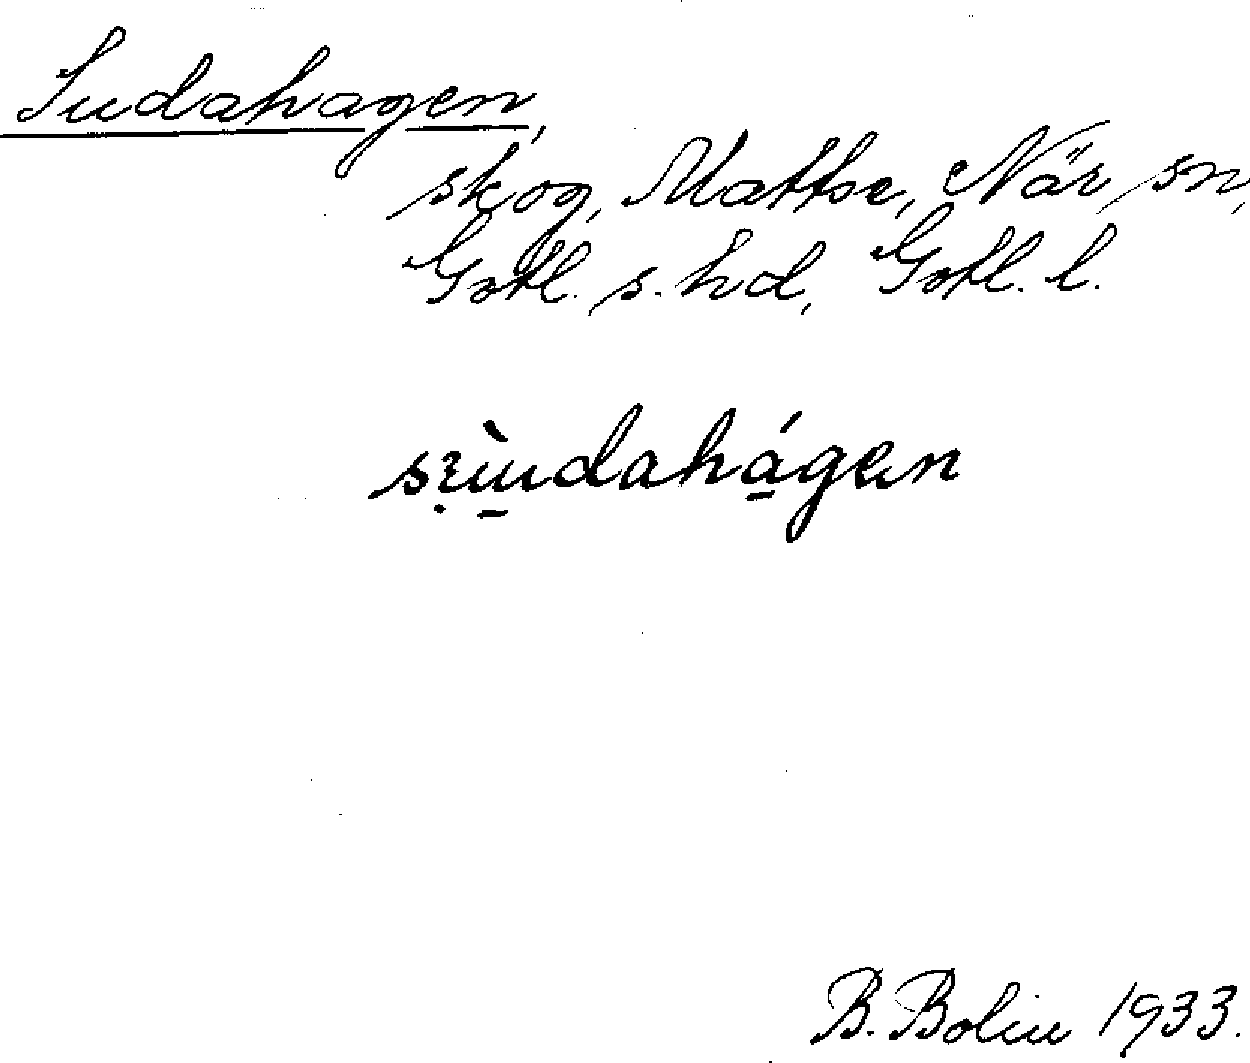 Sudahagen,
skog, Mattse, När sn,
Gotl. s. hd, Gotl. l.
B. Bolin 1933.